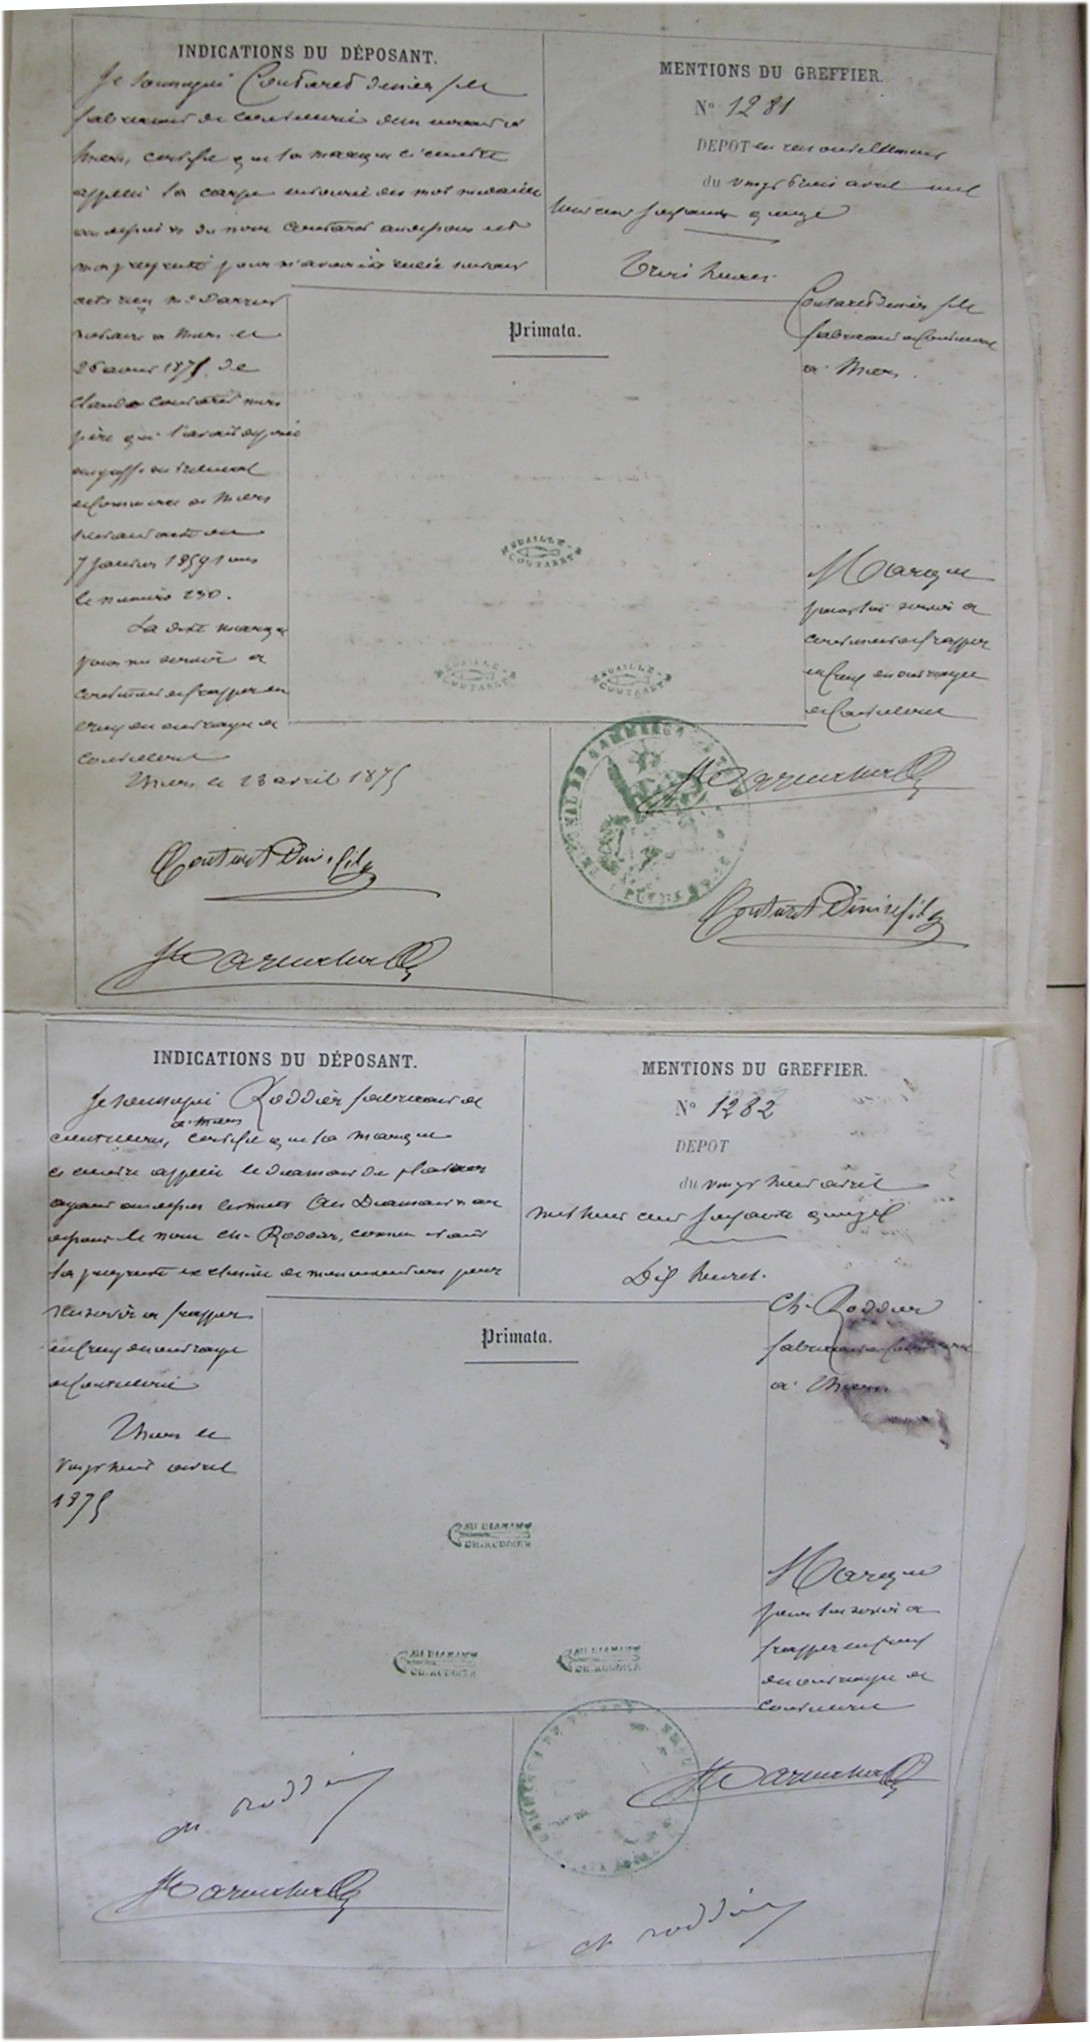 INDICATIONS DU DÉPOSANT.
Je soussigné Coutaret Denier fils
fabricant de coutellerie demeurant à
Thiers, certifie que la marque ci contre
appelée la carpe entourée des mot médaille
au dessus et du nom Coutaret au dessous est
ma propriété pour m'avoir été cédée suivant
acte reçu Me Darrier
notaire à Thiers le
26 1875 de
Claude Coutaret mon
père qui l'avait déposée
au greffe du tribunal
de Commerce de Thiers
suivant acte du
7 Janvier 1859 sous
le numéro 230.
La dite marque
pour me servir à
continuer de frapper en
creux des ouvrages de
coutellerie
Thiers le 23 avril 1875
Coutaret Denier fils
MENTIONS DU GREFFIER.
No 1281
DEPOT en renouvellement
du vingt trois avril mil
huit cent soixante quinze
Trois heures.
Coutaret Denier fils
fabricant de Coutellerie
à Thiers.
Primata.
MEDAILLE
COUTARET
MEDAILLE
COUTARET
MEDAILLE
COUTARET
Marque
pour lui servir à
continuer de frapper
en Creux des ouvrages
de Coutellerie
TRIBUNAL DE COMMERCE
Coutaret Denier fils
INDICATIONS DU DÉPOSANT.
Je soussigné Roddier fabricant de
à Thiers
coutellerie, certifie que la marque
ci contre appelée le diamant du
ayant au dessus les mots Au Diamant et au
dessous le nom Ch. Roddier, comme étant
la propriété exclusive de pour
m'en servir à frapper
en Creux des ouvrages
de Coutellerie
Thiers le
vingt huit avril
1875
ch roddier
MENTIONS DU GREFFIER.
No 1282
DEPOT
du vingt huit avril
mil huit cent soixante quinze
Dix heures.
Ch. Roddier
fabricant de Coutellerie
à Thiers
Primata.
AU DIAMANT
CH. RODDIER
AU DIAMANT
CH. RODDIER
AU DIAMANT
CH. RODDIER
Marque
pour lui servir à
frapper en Creux
des ouvrages de
coutellerie
ch roddier